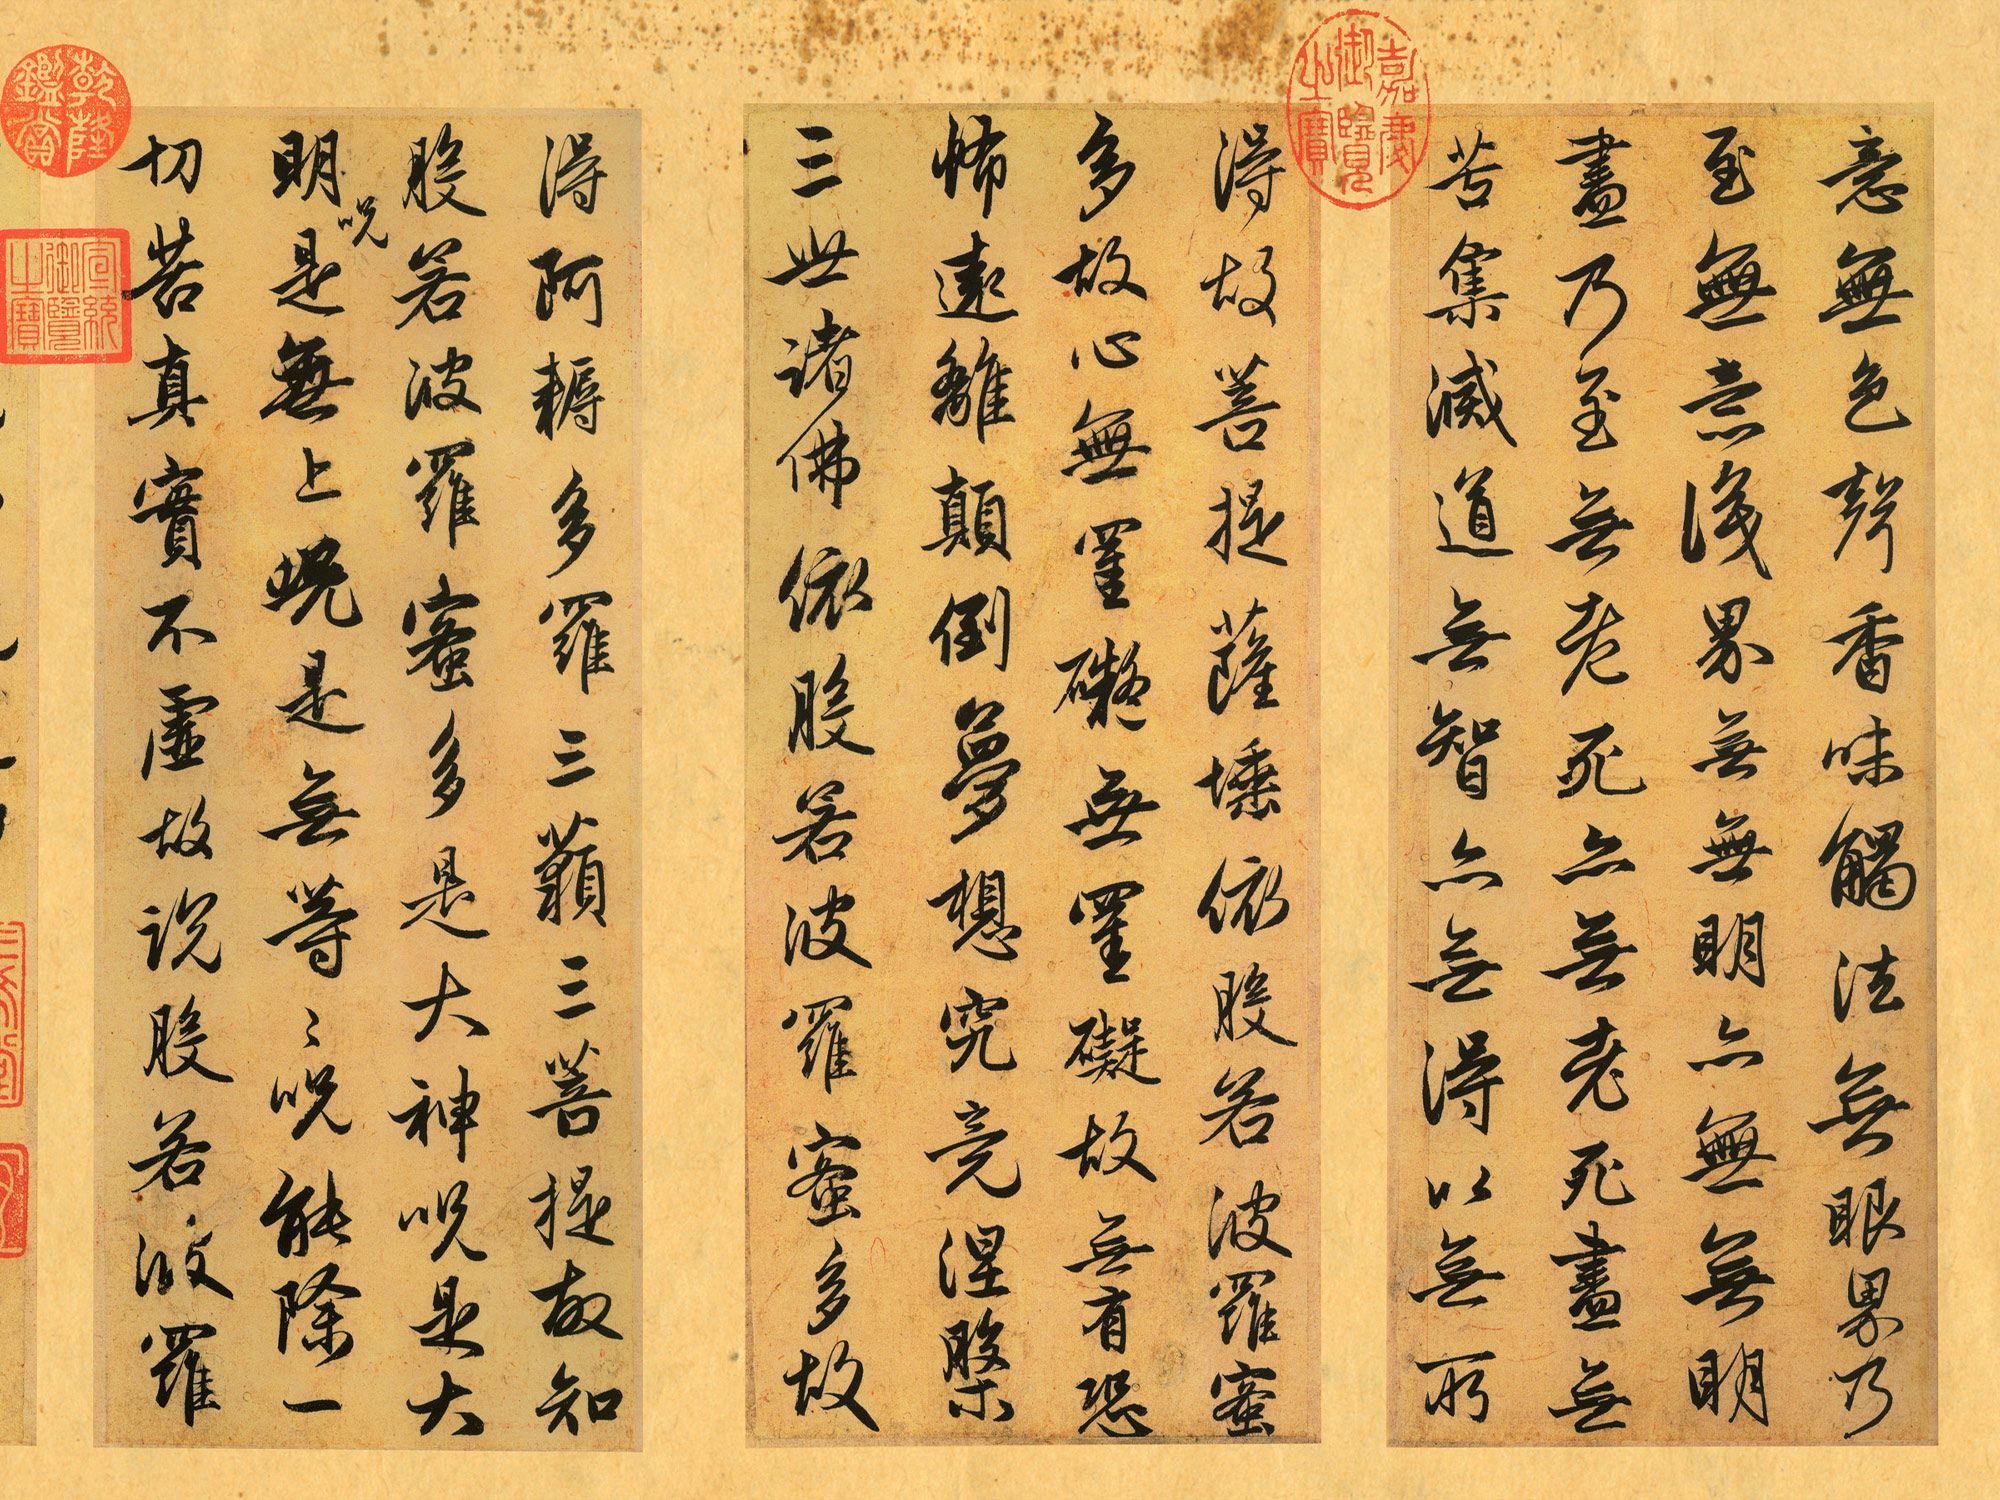 意無色聲香味觸法無眼界乃
至無意識界無無明亦無無明
盡乃至無老死亦無老死盡無
苦集滅道無智亦無得以無所
嘉慶御覽之寶
得故菩提薩埵依般若波羅蜜
多故心無罣礙無罣礙故無有恐
怖遠離顛倒夢想究竟涅槃
三世諸佛依般若波羅蜜多故
得阿耨多羅三藐三菩提故知
般若波羅蜜多是大神呪是大
明呪是無上呪是無等〻呪能除一
切苦真實不虛故說般若波羅
乾隆鑑賞
宣統御覽之寶